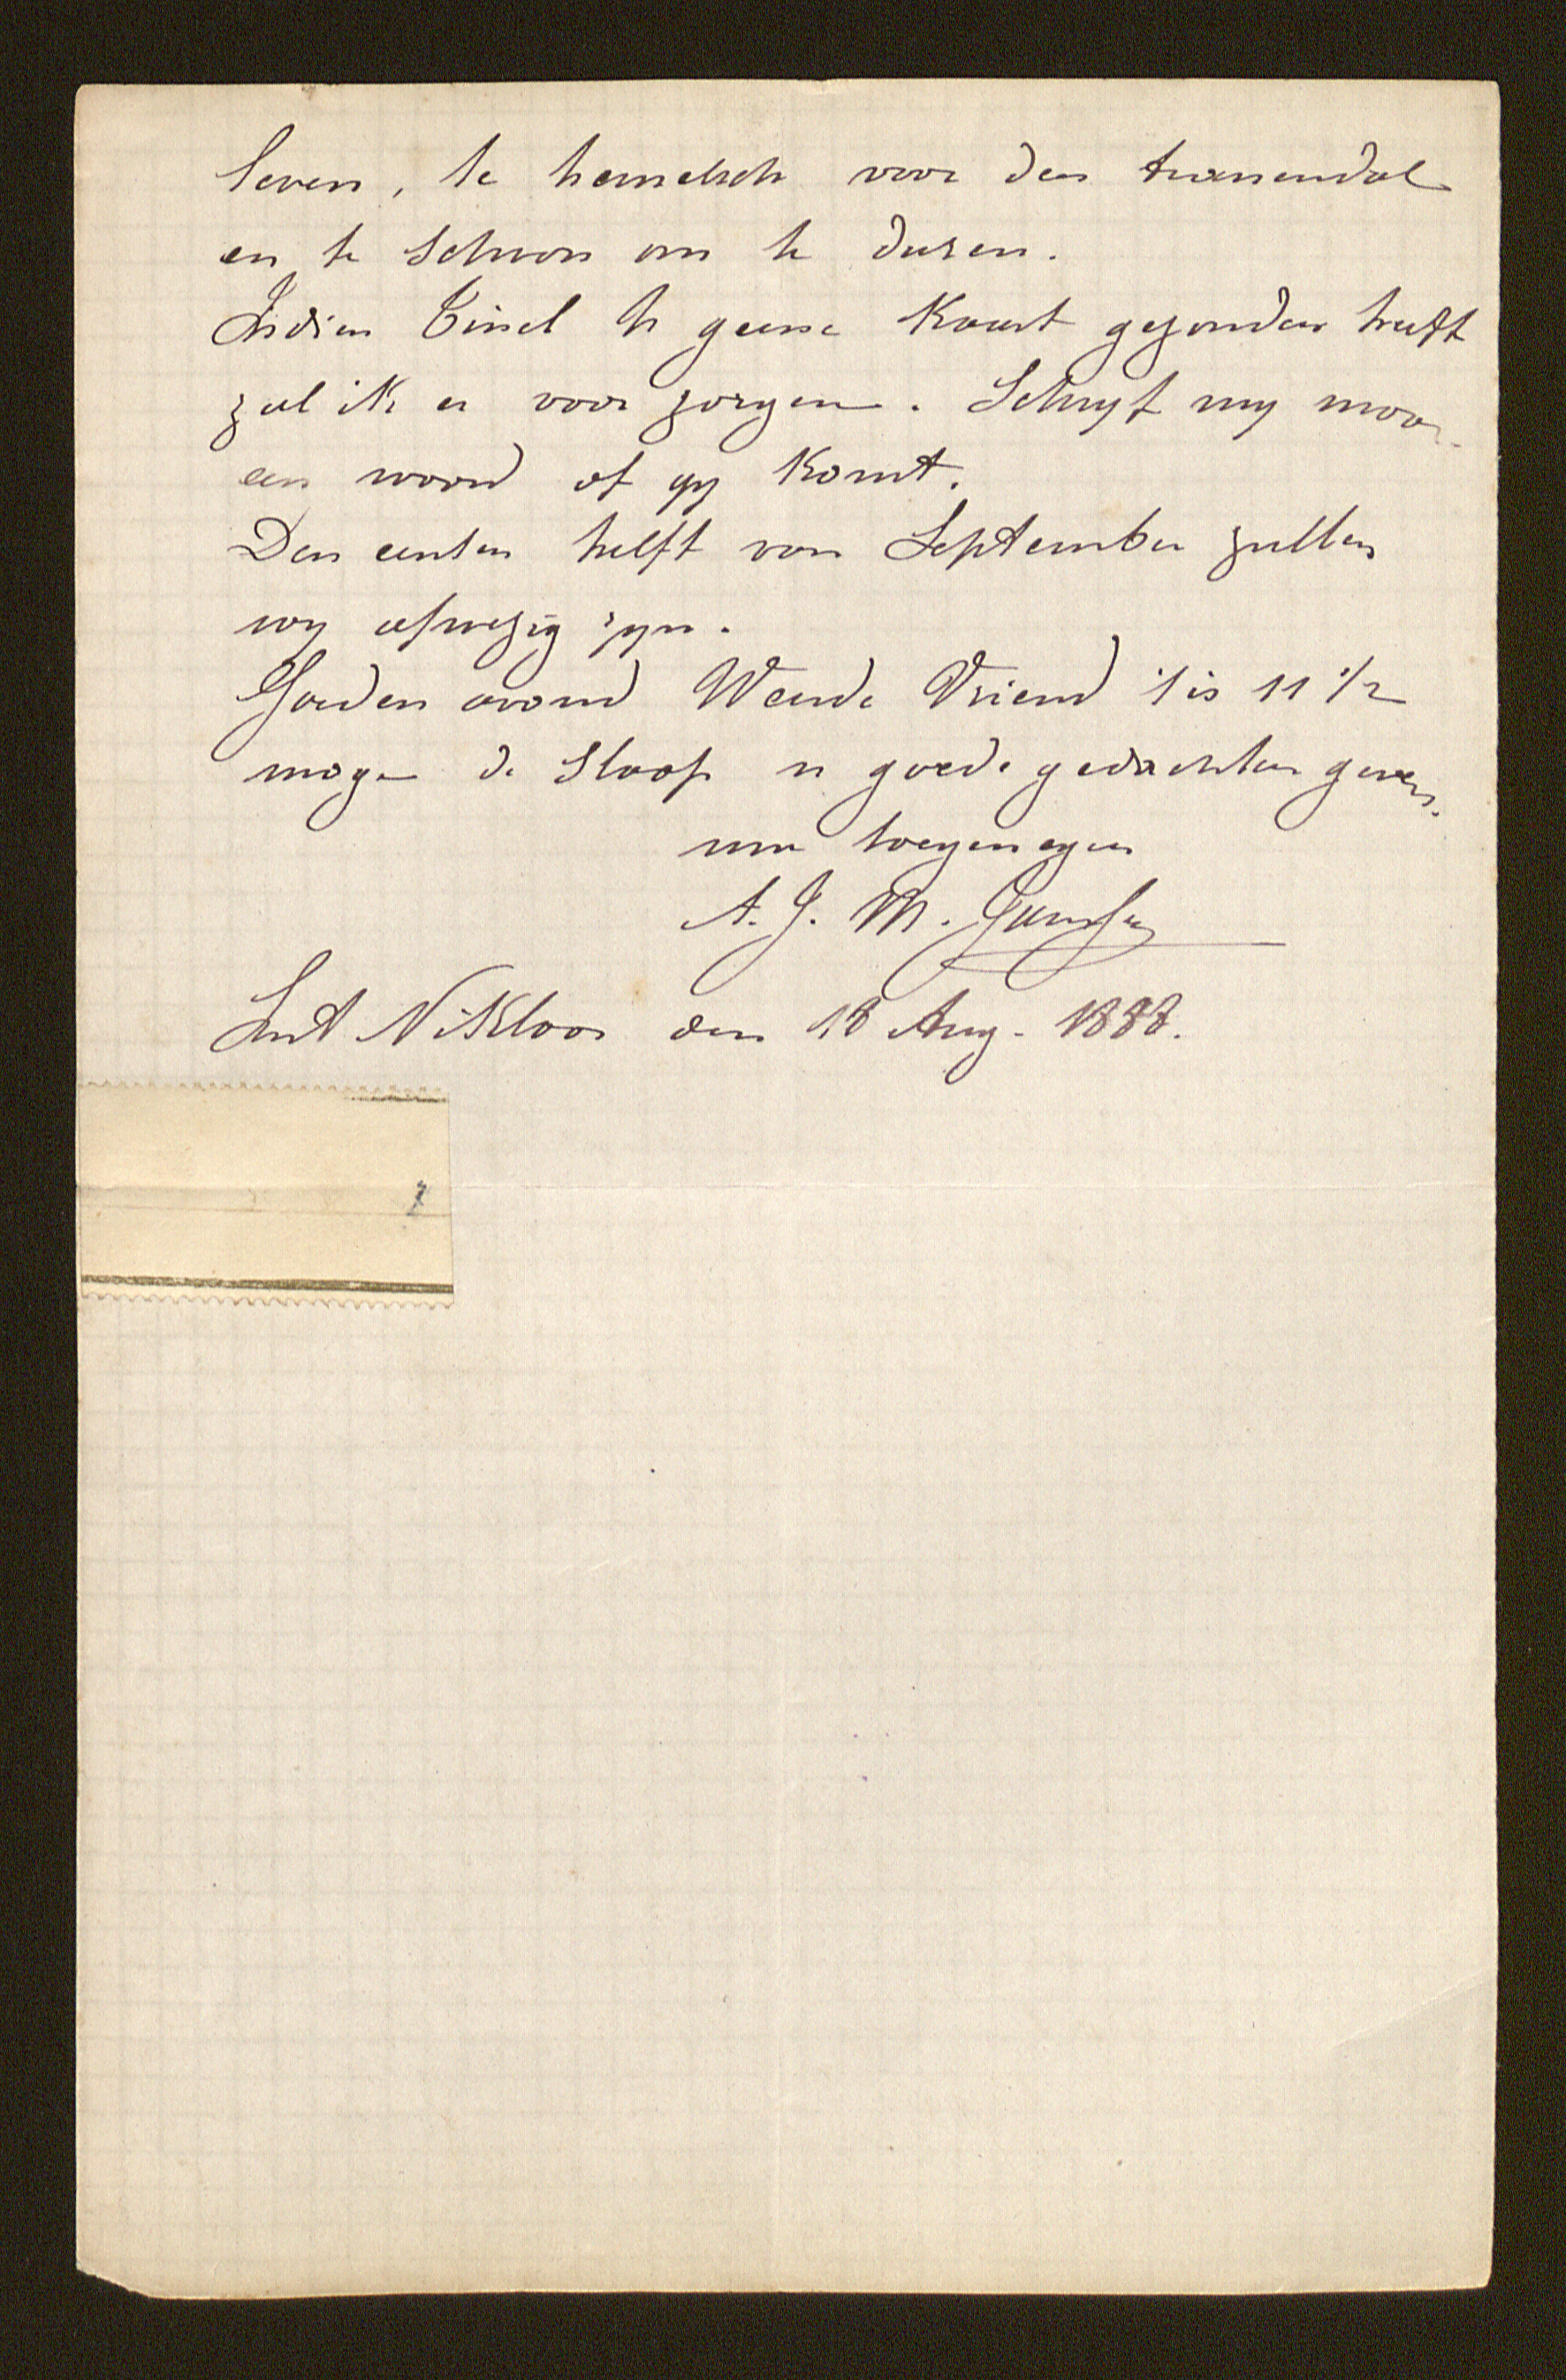 leven, te hemelsch voor den tranendal
en te schoon om te duren.
Indien Tinel U geene Kaart gezonden heeft
zal ik er voor zorgen. Schryf my maar
een woord of gy Komt.
Den eersten helft van September zullen
wy afwezig zyn.
Goeden avond Waerde Vriend 't is 11 1/2
moge de Slaap u goede gedachten geven.
uw toegenegen
A. J. M. Janssens
Sint Niklaas den 18 Aug. 1888.